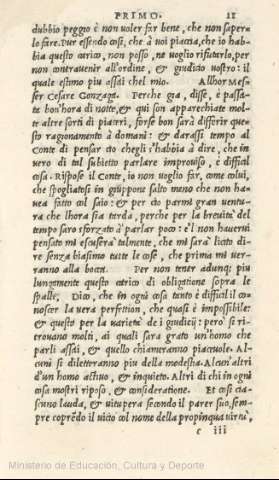 PRIMO. 11
dubbio peggio è non uoler far bene, che non saper-
lo fare. Pur essendo cosi, che à uoi piaccia, che io hab-
bia questo carico, non posso, ne uoglio rifiutarlo, per
non contrauenir all'ordine, & giudicio uostro: il
quale estimo piu assai che'l mio. Allhor Mes-
ser Cesare Gonzaga. Perche gia, disse, è passa-
ta bon'hora di notte, & qui son apparechiate mol-
te altre sorti di piaceri, forse bon sarà differir que-
sto ragionamento à domani: & darassi tempo al
Conte di pensar ciò ch'egli s'habbia à dire, che in
uero di tal subietto parlare improuiso, è difficil
cosa. Rispose il Conte, io non uoglio far, come colui,
che spogliatosi in giuppone saltò meno che non ha-
uea fatto col saio: & per ciò parmi gran uentu-
ra che l'hora sia tarda, perche per la breuità del
tempo saro sforzato à parlar poco: e'l non hauerui
pensato mi escuserà talmente, che mi sarà licito di-
re senza biasimo tutte le cose, che prima mi uer-
ranno alla bocca. Per non tener adunq; piu
lungamente questo carico di obligatione sopra le
spalle, Dico, che in ogni cosa tanto è difficil il co-
noscer la uera perfettion, che quasi è impossibile:
& questo per la uarietà de i giudicij: però si ri-
trouano molti, ai quali sarà grato un'homo che
parli assai, & quello chiameranno piaceuole. Al-
cuni si diletteranno piu della modestia. Alcun'altri
d'un homo attiuo, & inquieto. Altri di chi in ogni
cosa mostri riposo, & consideratione. Et cosi cia-
scuno lauda, & uitupera secondo il parer suo, sem-
pre coprēdo il uicio col nome della propinqua uirtù,
c iii
Ministerio de Educación, Cultura y Deporte